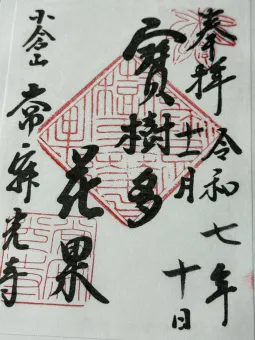 奉拝
令和七年
月十日
寶樹多
花果
小倉山
常寂光寺